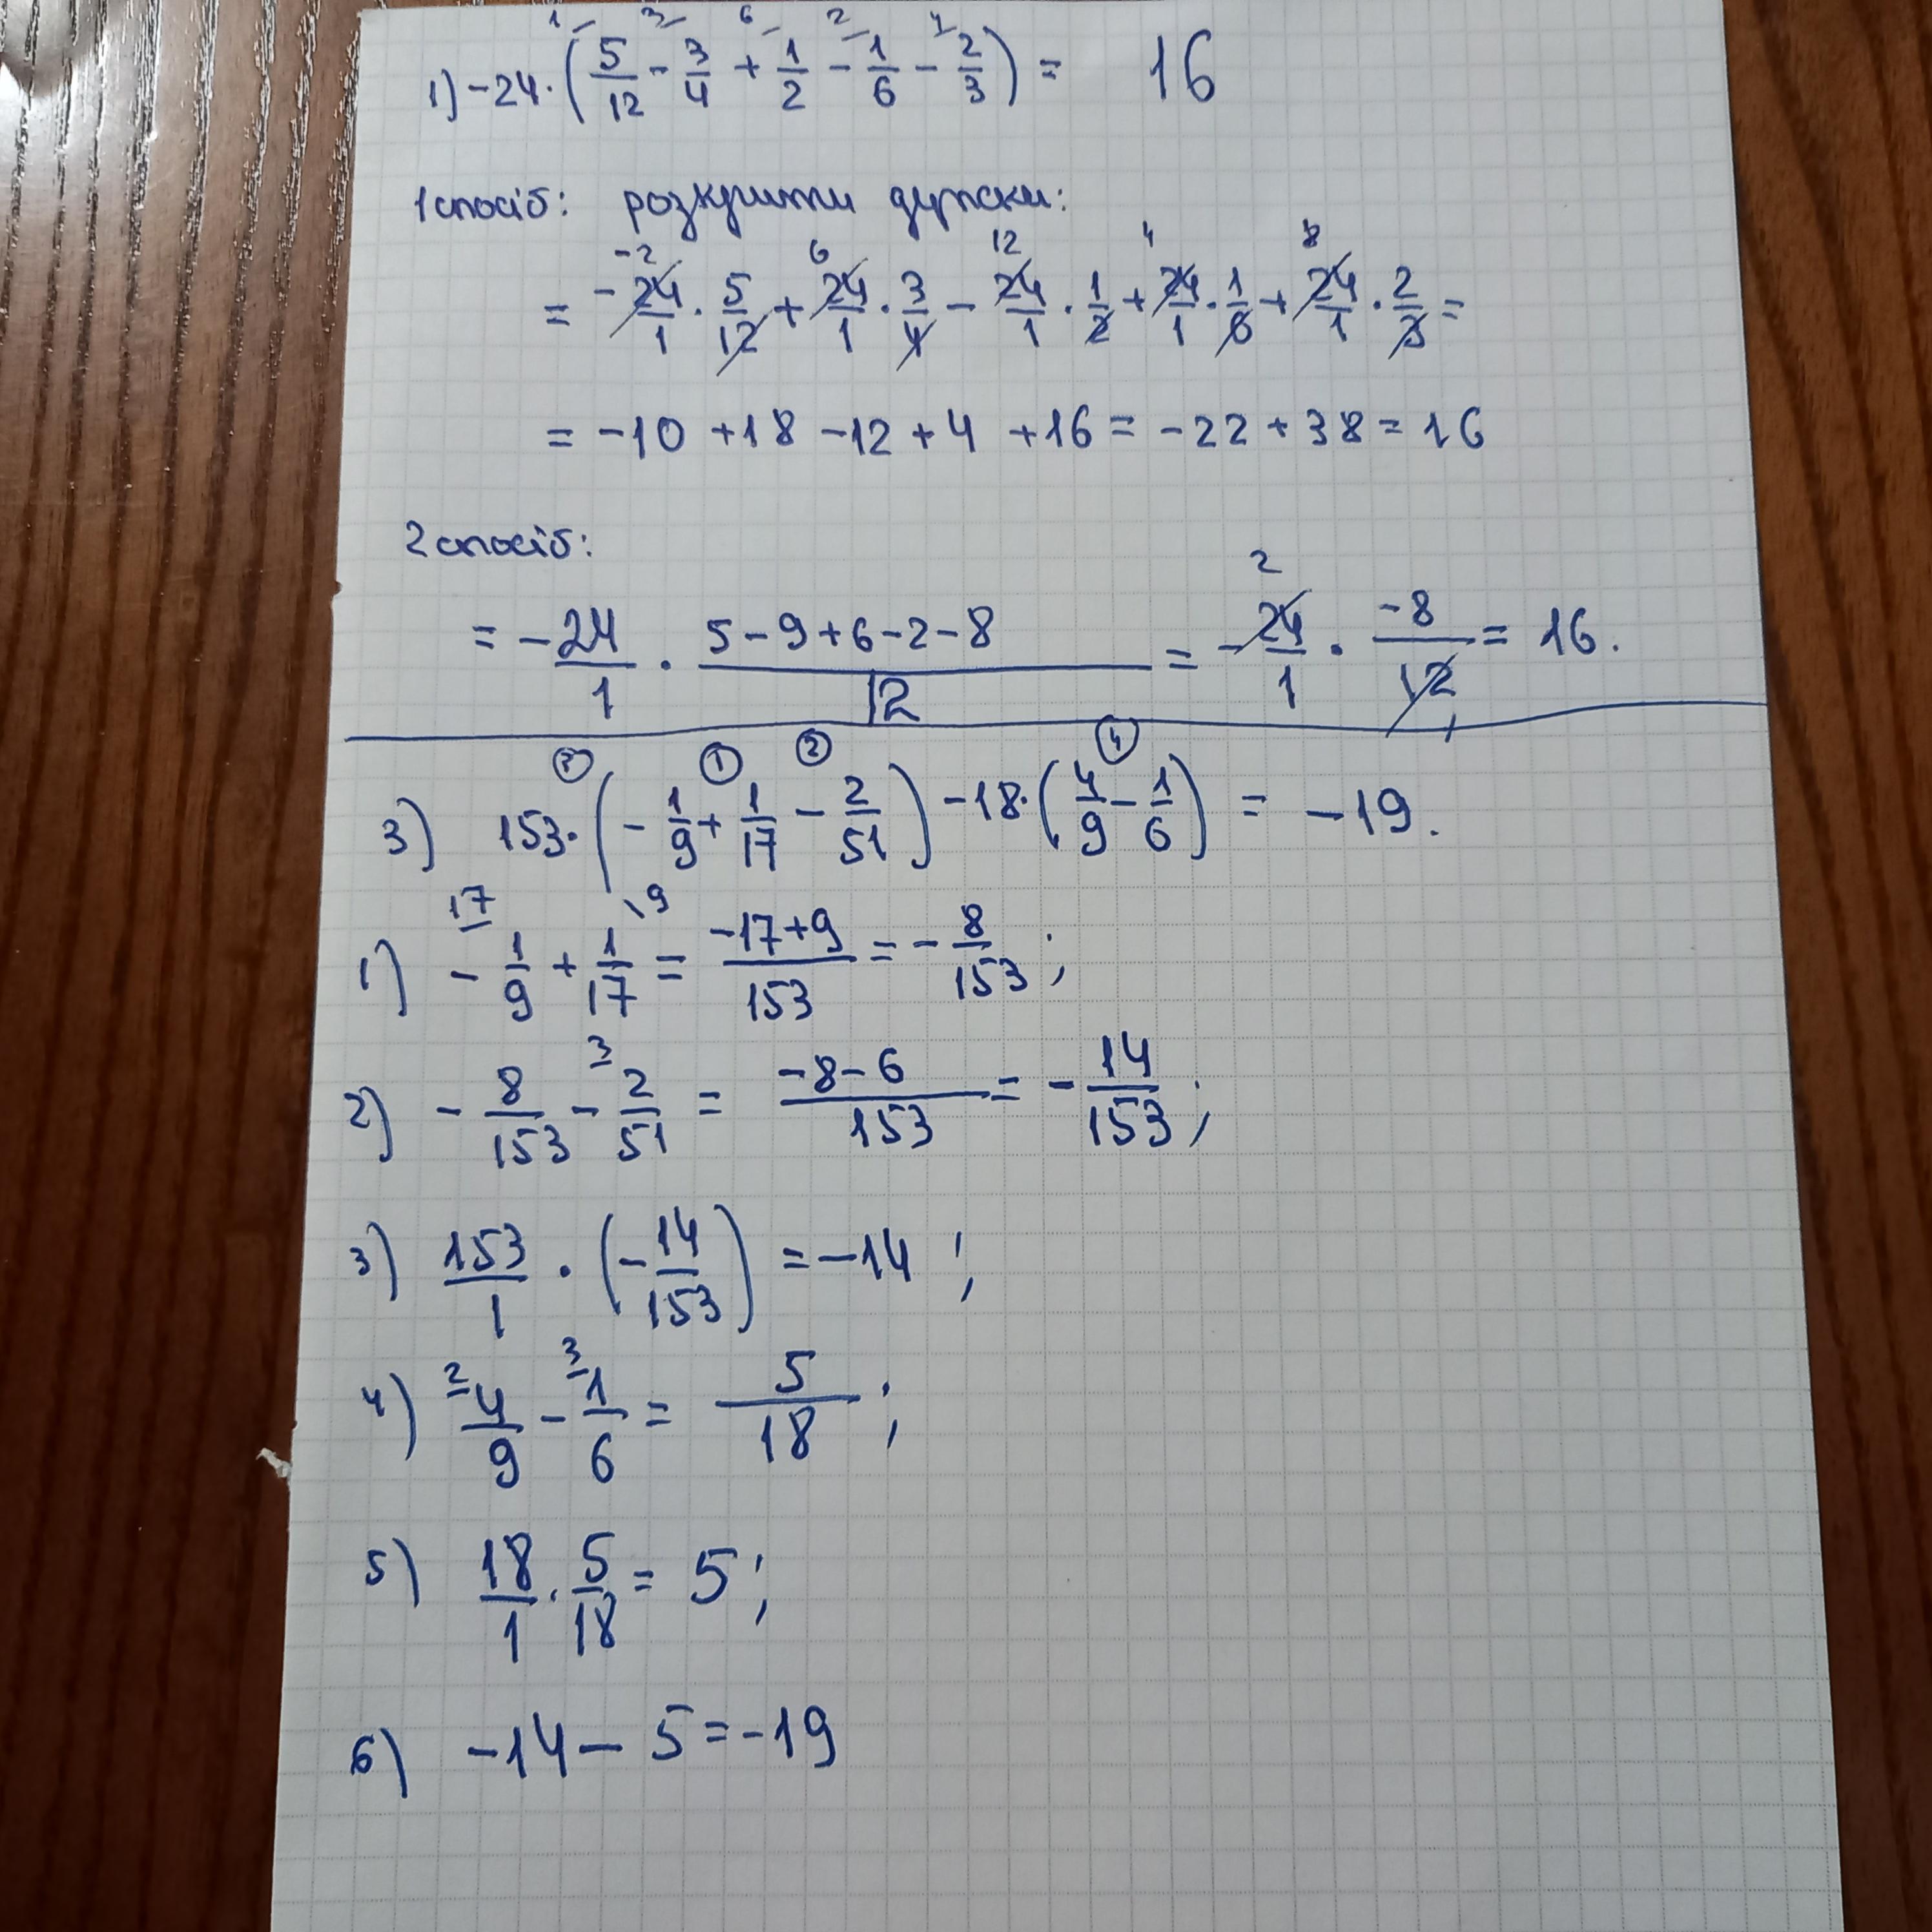 1) -24·(5/12 - 3/4 + 1/2 - 1/6 - 2/3) = 16
1 спосіб: розкрити дужки:
= -24/1 · 5/12 + 24/1 · 3/4 - 24/1 · 1/2 + 24/1 · 1/6 + 24/1 · 2/3 =
= -10 +18 -12 + 4 +16 = -22 + 38 = 16
2 спосіб:
= -24/1 · (5-9+6-2-8)/12 = -24/1 · -8/12 = 16.
3) 153·(-1/9 + 1/17 - 2/51) -18·(4/9 - 1/6) = -19.
1) -1/9 + 1/17 = (-17+9)/153 = -8/153;
2) -8/153 - 2/51 = (-8-6)/153 = -14/153;
3) 153/1 · (-14/153) = -14;
4) 4/9 - 1/6 = 5/18;
5) 18/1 · 5/18 = 5;
6) -14 - 5 = -19